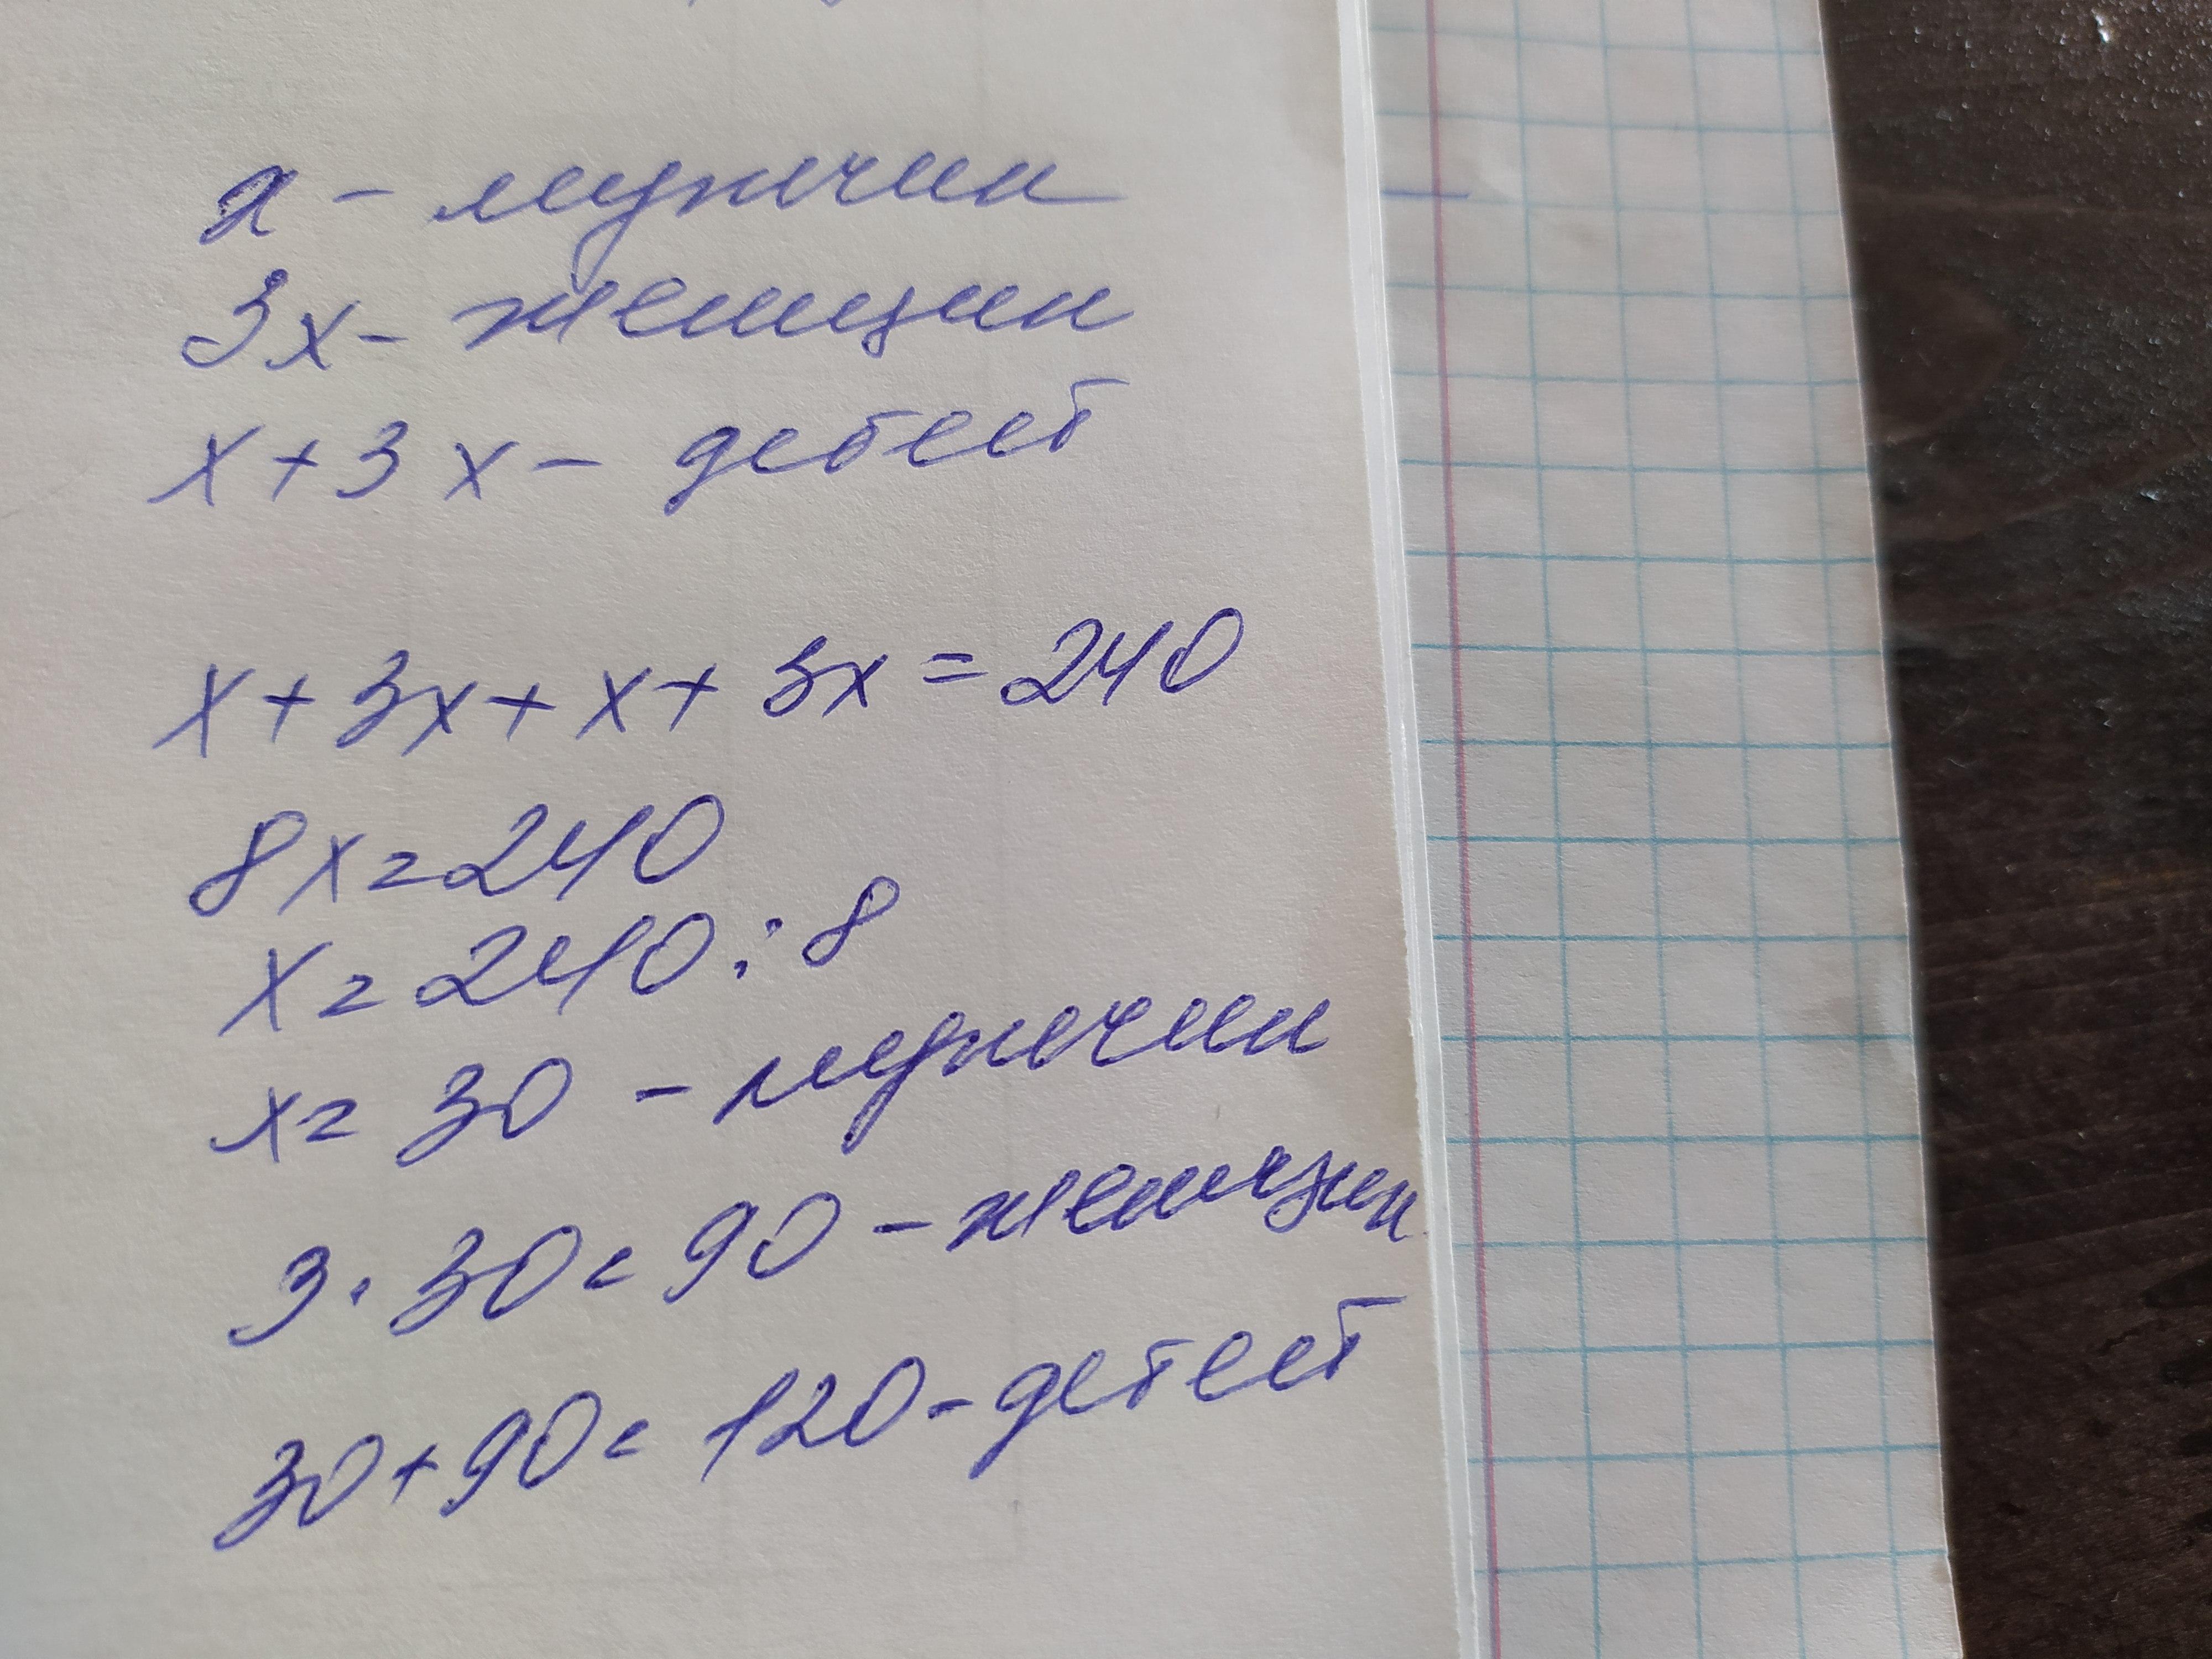 х - мужчин
3х - женщин
х + 3х - детей
х + 3х + х + 3х = 240
8х = 240
х = 240 : 8
х = 30 - мужчин
3 · 30 = 90 - женщин
30 + 90 = 120 - детей